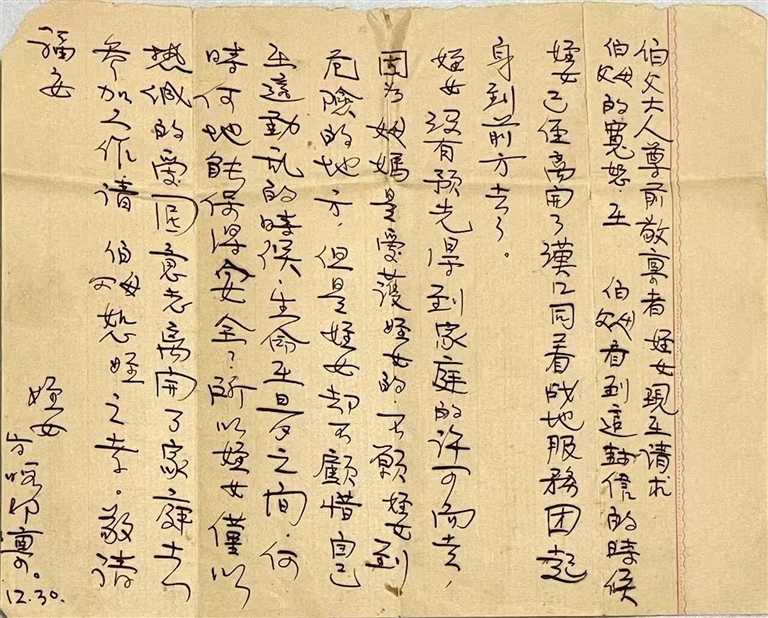 伯父大人尊前敬禀者 姪女現在请求
伯父母的寬恕.在 伯父母看到這封信的時候
姪女已经离開了漢口同着战地服務团起
身到前方去了。
姪女没有预先得到家庭的许可而去，
因为妈妈是爱護姪女的.不願姪女到
危險的地方，但是姪女却不顧惜自己
在這動乱的時候.生命在旦夕之间.何
時何地能保得安全？所以姪女僅以
热诚的爱国意志离開了家庭去
参加工作请 伯父母恕姪之幸。敬请
福安
姪女
叩禀。
12.30.